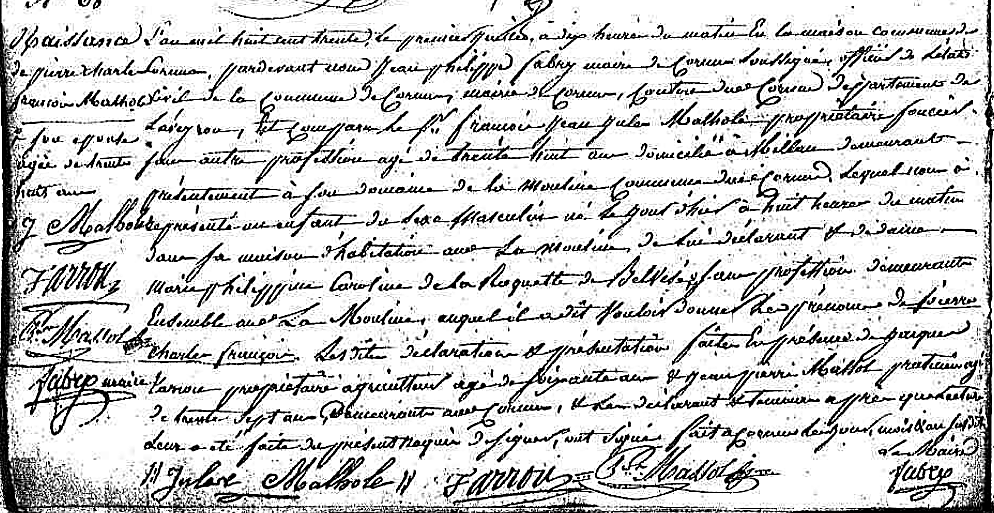 Naissance
de pierre charles
françois Malhole
son épouse
agée de trente
huit ans
J Malhole
Farrou
Massol
Fabry maire
L'an mil huit cent trente, le premier juillet, à dix heures du matin En la maison commune de
Cornus, pardevant nous Jean philippe fabry maire de Cornus soussigné, officier de l'état
civil de la Commune de Cornus, mairie de Cornus, Canton dudit Cornus département de
Laveyron, Est comparu le Sr. françois Jean Jules Malhole propriétaire foncier
sans autre profession agé de trente huit ans domicilié à Millau demeurant
présentement à son domaine de la mouline Commune dudit Cornus, lequel nous à
représenté un enfant du sexe Masculin né le jour d'hier à huit heures du matin
dans sa maison d'habitation audit La mouline, de lui déclarant & de dame
marie philippine Caroline de la Roquette de sans profession demeurante
Ensemble audit La Mouline, auquel il a dit Vouloir donner les prénoms de pierre
charles françois. Lesdites déclaration & présentation faites En présence de
farrou propriétaire agriculteur agé de soixante ans & Jean pierre Massol praticien agé
de trente Sept ans, demeurants audit Cornus, & les déclarant & témoins après que lecture
leur a été faite du présent Requis de signer, ont signé fait à Cornus les jour, mois & an susdits
Le Maire
Jules Malhole Farrou Massol Fabry